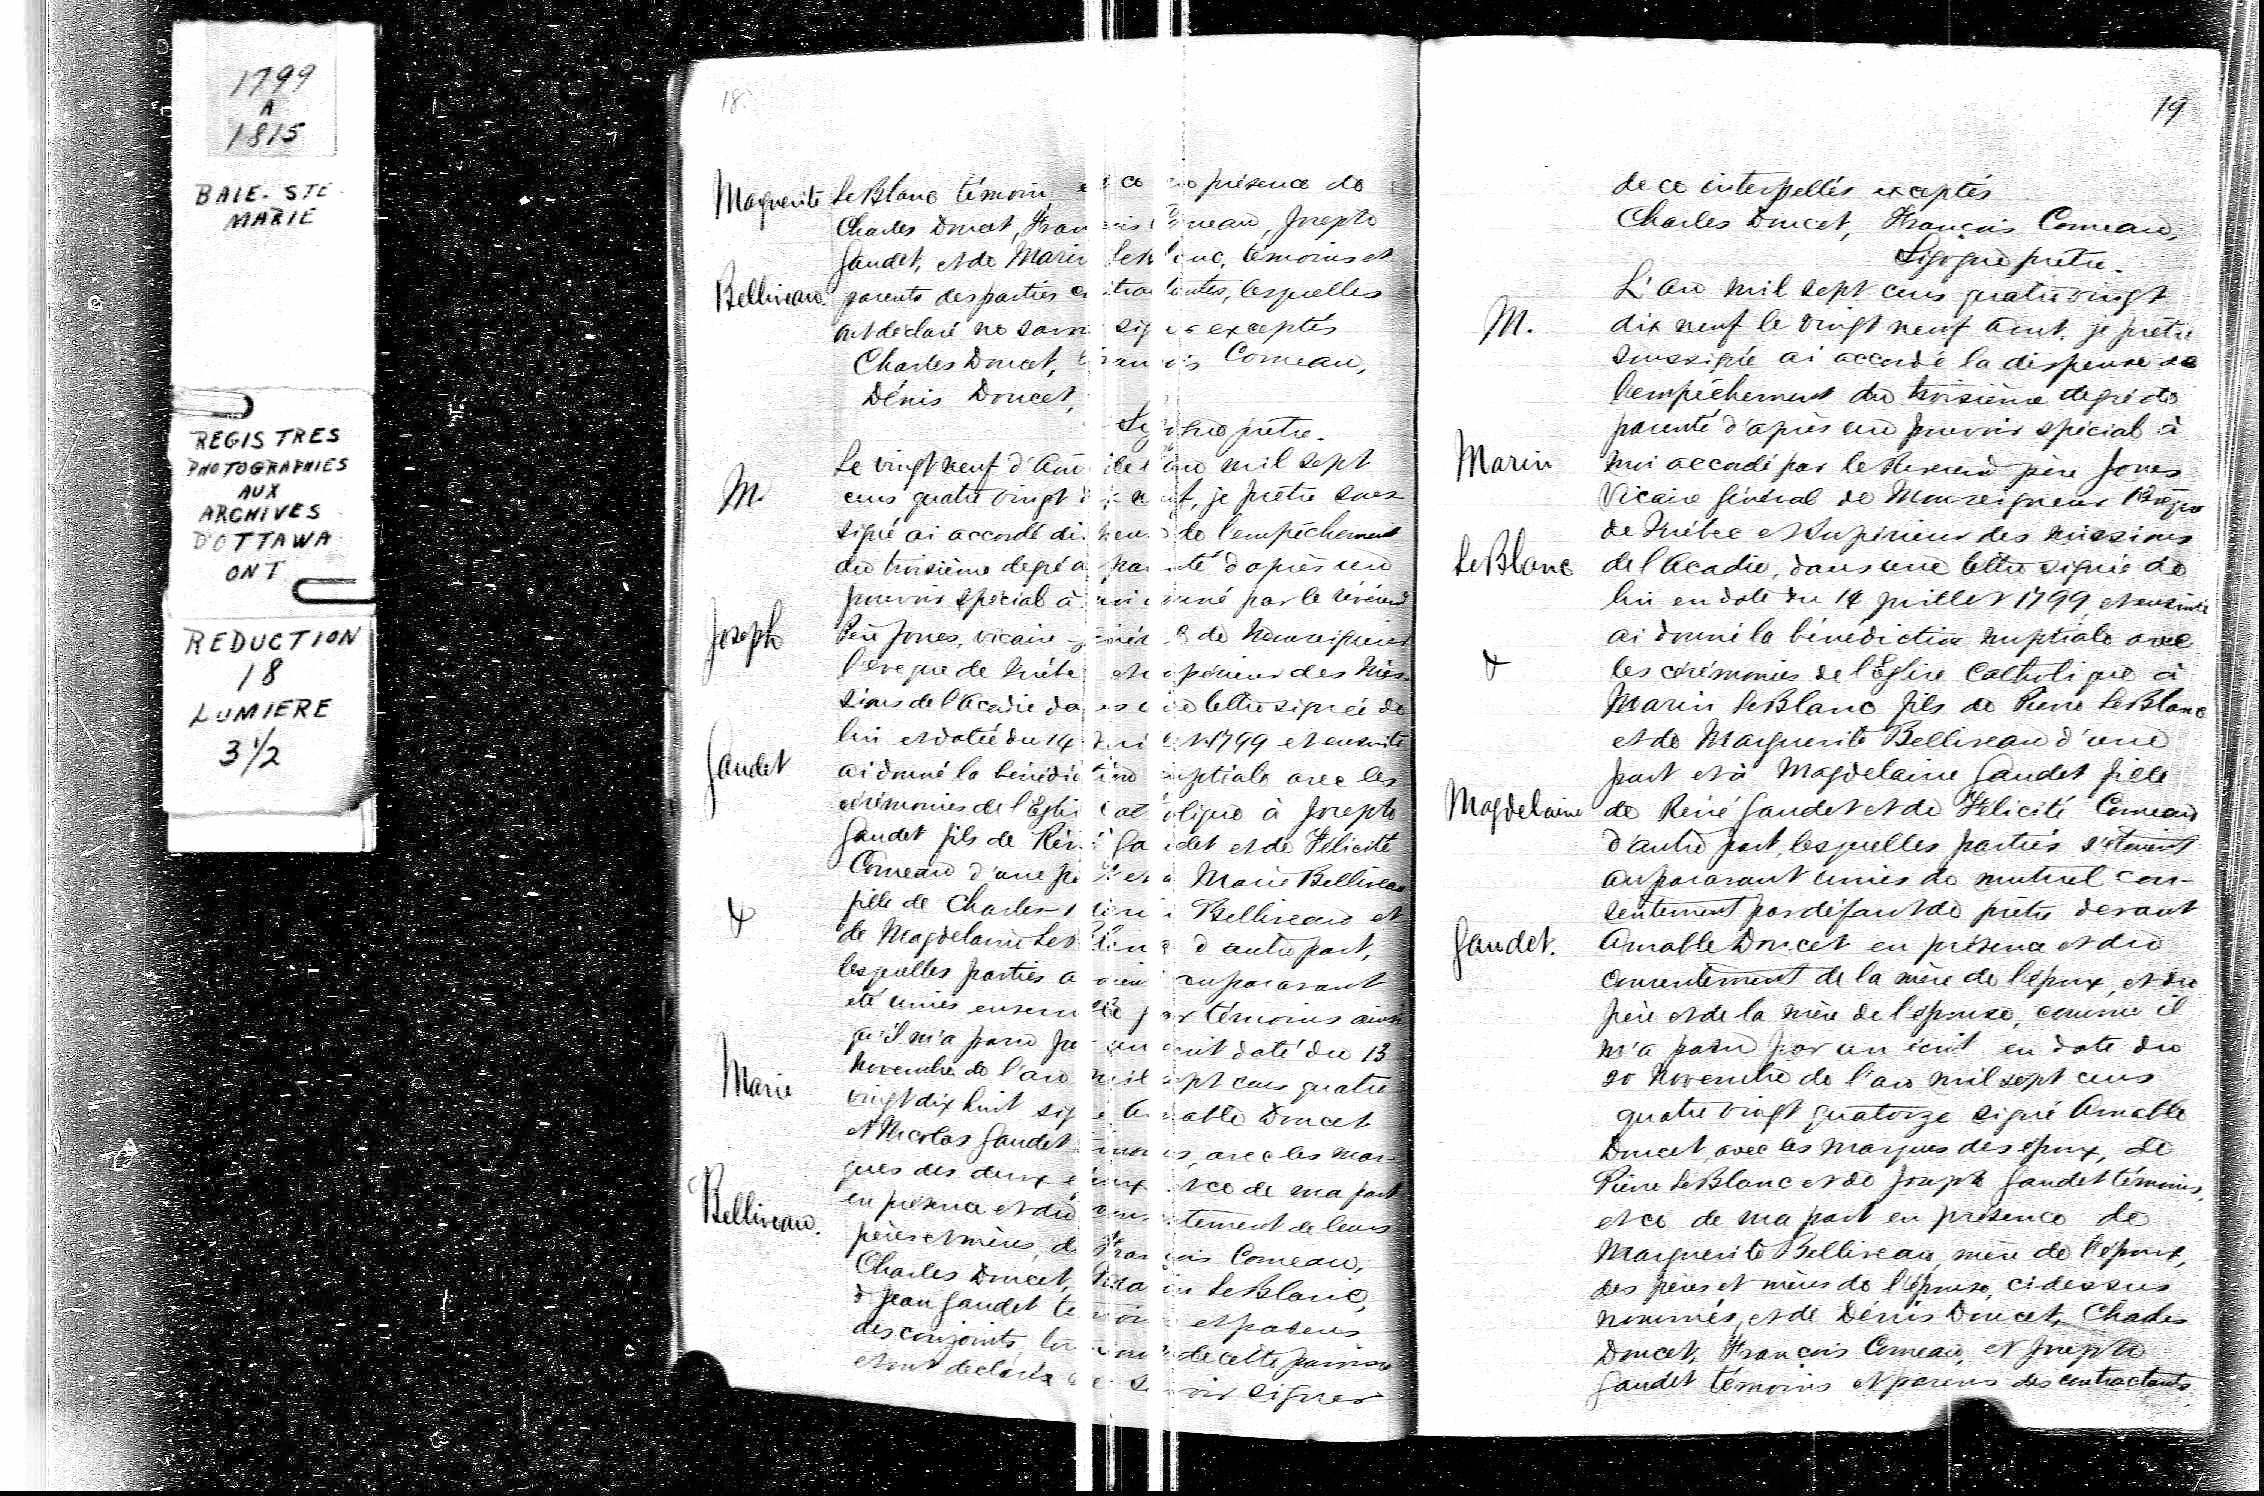 1799
A
1815
BAIE. STE
MARIE
REGISTRES
PHOTOGRAPHIES
AUX
ARCHIVES
D'OTTAWA
ONT
REDUCTION
18
LUMIERE
3 1/2
18.
Marguerite
Belliveau
LeBlanc témoin, et ce présence de
Charles Doucet, François Comeau, Joseph
Gaudet, et de Marin LeBlanc, témoins et
parents des parties contractantes, lesquelles
ont déclaré ne savoir signer exceptés
Charles Doucet, François Comeau,
Dénis Doucet,
Sigogne prêtre.
M.
Joseph
Gaudet
&
Marie
Belliveau.
Le vingt neuf d'Août de l'an mil sept
cens quatre vingt dix neuf, je prêtre sous
signé ai accordé dispense de l'empêchement
du troisième degré de parenté d'après un
pouvoir spécial à moi donné par le révérend
Père Jones, vicaire général de Monseigneur
l'éveque de Québec et supérieur des Mis-
sions de l'Acadie dans une lettre signée de
lui et datée du 14 Juillet 1799 et ensuite
ai donné la bénédiction nuptiale avec les
cérémonies de l'Eglise Catholique à Joseph
Gaudet fils de Réné Gaudet et de Félicité
Comeau d'une part et à Marie Belliveau
fille de Charles Belliveau et
de Magdelaine LeBlanc d'autre part,
lesquelles parties avoient auparavant
été unies ensemble par témoins ainsi
qu'il m'a paru par un écrit daté du 13
Novembre de l'an mil sept cens quatre
vingt dix huit signé Amable Doucet
et Nicolas Gaudet témoins, avec les mar-
ques des deux époux et ce de ma part
en présence et du consentement de leurs
pères et mères, de François Comeau,
Charles Doucet, LeBlanc,
& Jean Gaudet témoins et parens
des conjoints, tous de cette paroisse
et ont déclarés ne savoir signer
19
de ce interpellés exceptés
Charles Doucet, François Comeau,
Sigogne prêtre.
M.
Marin
LeBlanc
&
Magdelaine
Gaudet.
L'an mil sept cens quatre vingt
dix neuf le vingt neuf Aout, je prêtre
soussigné ai accordé la dispense de
l'empêchement du troisième degré de
parenté d'après un pouvoir spécial à
moi accordé par le Révérend père Jones
Vicaire Général de Monseigneur l'Evêque
de Québec et Supérieur des missions
de l'Acadie, dans une lettre signée de
lui en date du 14 Juillet 1799 et ensuite
ai donné la bénédiction nuptiale avec
les cérémonies de l'Eglise Catholique à
Marin LeBlanc fils de Pierre LeBlanc
et de Marguerite Belliveau d'une
part et à Magdelaine Gaudet fille
de Réné Gaudet et de Félicité Comeau
d'autre part, lesquelles parties s'étoient
auparavant unies de mutuel con-
sentement par défaut de prêtre devant
Amable Doucet en présence et du
consentement de la mère de l'époux, et du
père et de la mère de l'épouse, comme il
m'a paru par un écrit en date du
20 Novembre de l'an mil sept cens
quatre vingt quatorze signé Amable
Doucet, avec les marques des époux, de
Pierre LeBlanc et de Joseph Gaudet témoins,
et ce de ma part en présence de
Marguerite Belliveau, mère de l'époux,
des pères et mères de l'épouse, cidessus
nommés, et de Dénis Doucet, Charles
Doucet, François Comeau, et Joseph
Gaudet témoins et parens des contractants